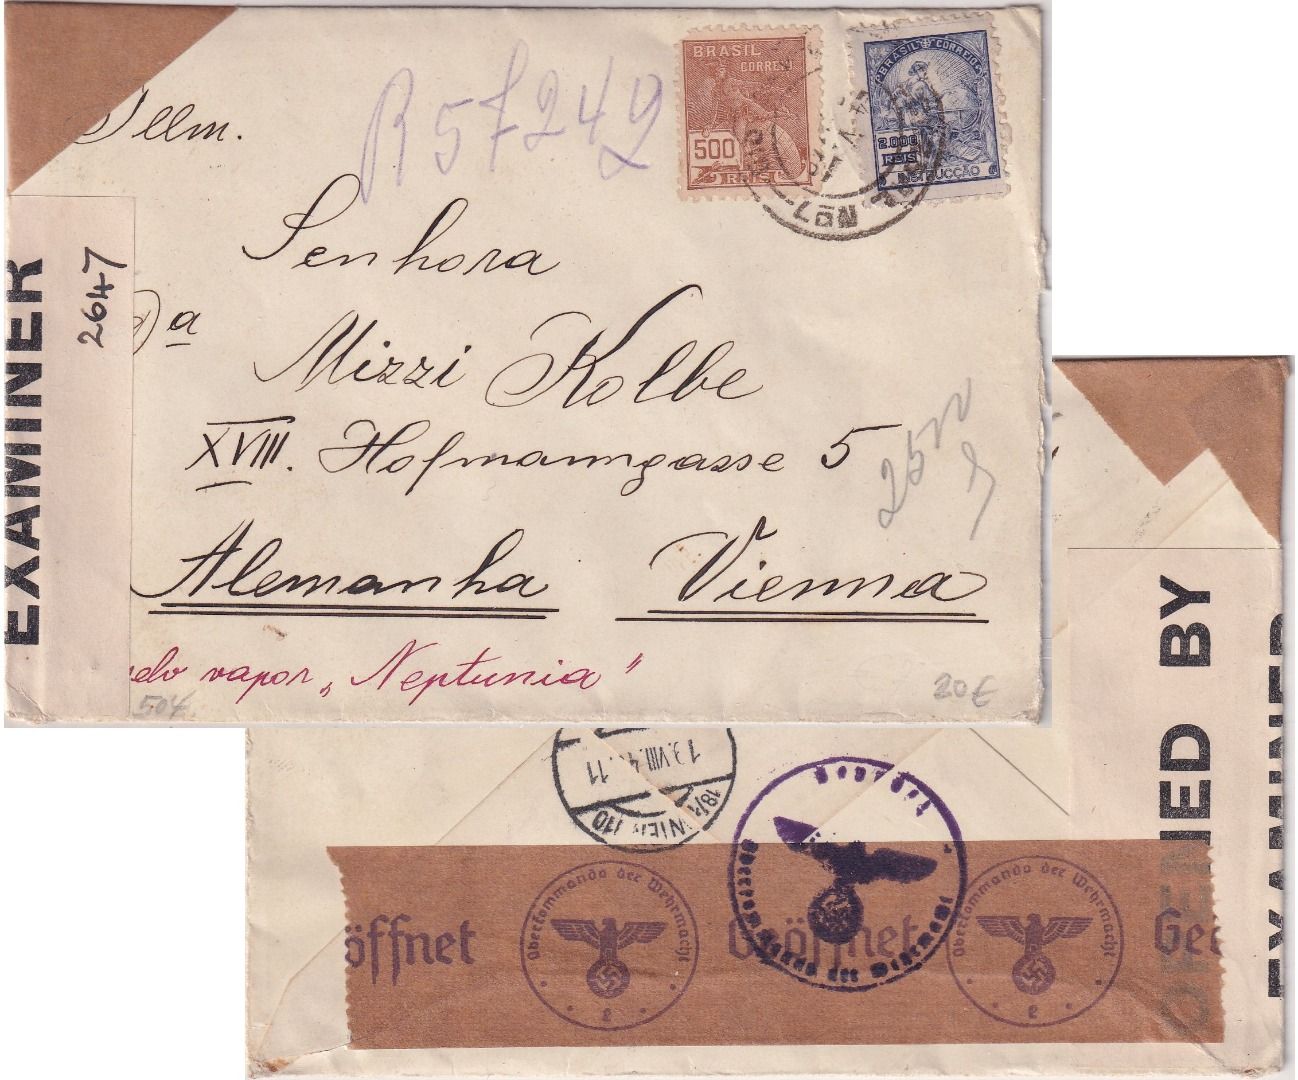 Illm.
R57249
BRASIL
CORREIO
500
REIS
BRASIL CORREIO
2.000
REIS
INSTRUCÇÃO
Nº7
EXAMINER
2647
Senhora
Dª
Mizzi Kolbe
XVIII. Hofmanngasse 5
2500
Alemanha Vienna
pelo vapor „Neptunia"
504
20€
OPENED BY
EXAMINER
18/1 WIEN 110
Geprüft
Oberkommando der Wehrmacht
öffnet
Oberkommando der Wehrmacht
e
Geöffnet
Oberkommando der Wehrmacht
e
Geö